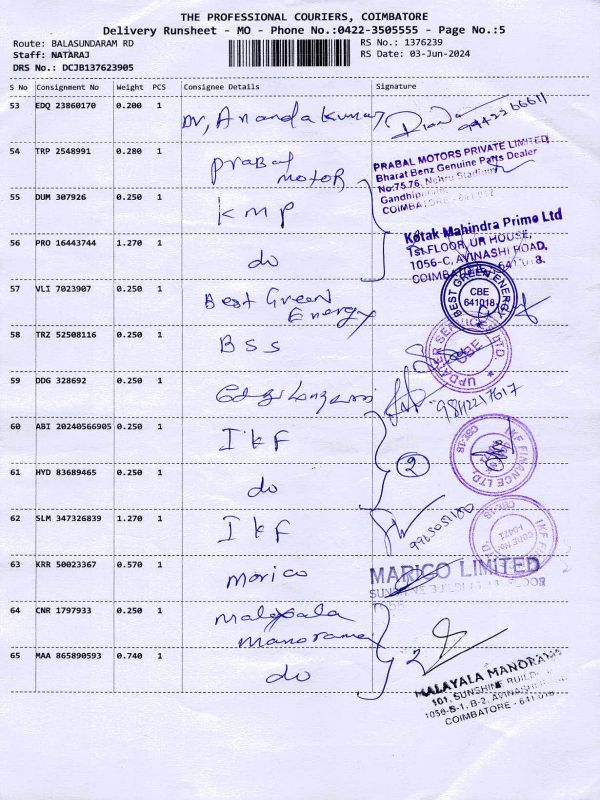 THE PROFESSIONAL COURIERS, COIMBATORE
Delivery Runsheet - MO - Phone No.:0422-3505555 - Page No.:5
Route: BALASUNDARAM RD
RS No.: 1376239
Staff: NATARAJ
RS Date: 03-Jun-2024
DRS No.: DCJB137623905
S No Consignment No Weight PCS Consignee Details Signature
53 EDQ 23860170 0.200 1 Dr, Anandakumar
54 TRP 2548991 0.280 1 Prabal
Motor
PRABAL MOTORS PRIVATE LIMITED
Bharat Benz Genuine Parts Dealer
No:75,76, Nehru Stadium
COIMBATORE
55 DUM 307926 0.250 1 KMP
56 PRO 16443744 1.270 1 do
Kotak Mahindra Prime Ltd
1st FLOOR, UR HOUSE,
1056-C, AVINASHI ROAD,
COIMBATORE - 641 018.
57 VLI 7023907 0.250 1 Best Green
Energy
BEST GREEN ENERGY
CBE
641018
58 TRZ 52508116 0.250 1 BSS
CBE
59 DDG 328692 0.250 1
60 ABI 20240566905 0.250 1 IKF
2
IKF FINANCE LTD.
CBE-18
61 HYD 83689465 0.250 1 do
62 SLM 347326839 1.270 1 IKF
63 KRR 50023367 0.570 1 Marico
MARICO LIMITED
64 CNR 1797933 0.250 1 Malayala
Manorama
2
65 MAA 865890593 0.740 1 do
MALAYALA MANORAMA
101, SUNSHINE BUILDING
1056-B-1, B-2, AVINASHI
COIMBATORE - 641 018